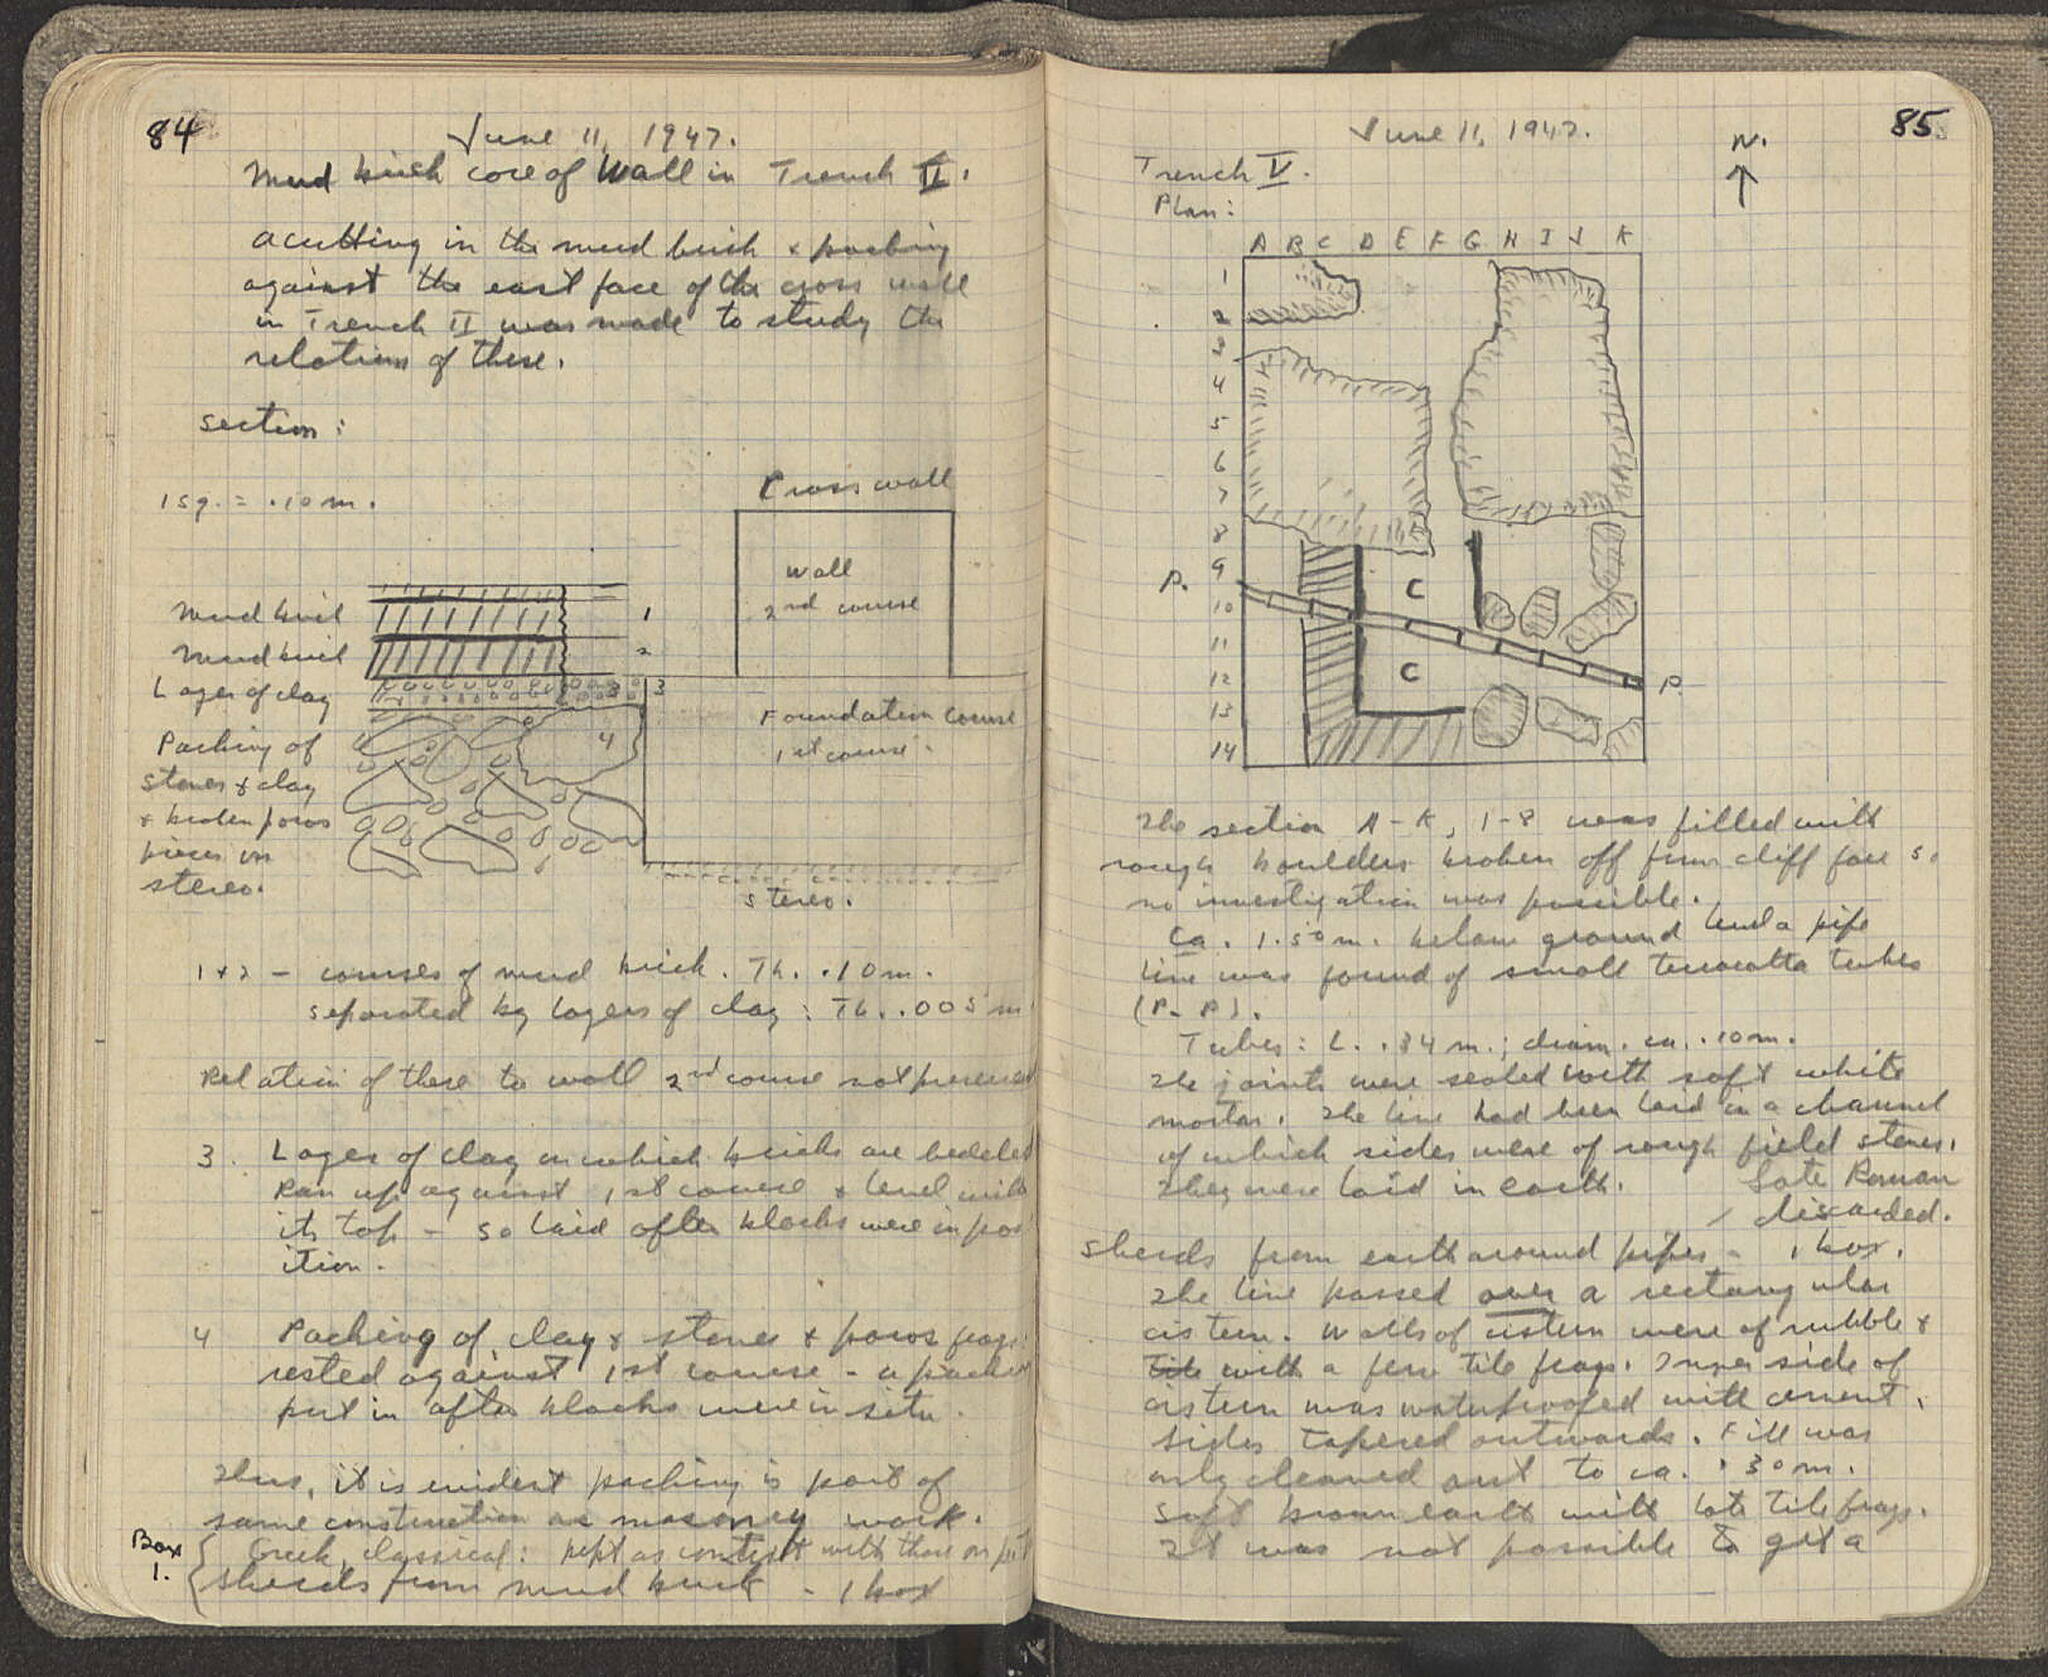 84
June 11, 1947.
Mud brick core of Wall in Trench II.
A cutting in the mud brick & packing
against the east face of the cross wall
in Trench II was made to study the
relations of these.
Section:
1 sq. = .10 m.
Cross wall
Wall
2nd course
Mud brick
1
Mud brick
2
Layer of clay
3
3
Foundation Course
1st course.
Packing of
stones & clay
& broken poros
pieces on
stereo.
4
stereo.
1 + 2 – courses of mud brick. Th. .10 m.
separated by layers of clay: Th. .005 m
Relation of these to wall 2nd course not preserved
3. Layer of clay on which bricks are bedded
Ran up against 1st course & level with
its top – so laid after blocks were in pos
ition.
4 Packing of clay & stones & poros frags.
rested against 1st course – a packing
put in after blocks were in situ.
Thus, it is evident packing is part of
same construction as masonry work.
Box
1.
Greek, classical: kept as context with those on
Sherds from mud brick – 1 box
85
June 11, 1947.
N.
Trench V.
Plan:
A B C D E F G H I J K
1
2
3
4
5
6
7
8
9
10
11
12
13
14
P.
C
C
P.
The section A – K, 1–8 was filled with
rough boulders broken off from cliff face so
no investigation was possible.
Ca. 1.50 m. below ground level a pipe
line was found of small terracotta tubes
(P. P).
Tubes: L. .34 m.; diam. ca. .10 m.
The joints were sealed with soft white
mortar. The line had been laid in a channel
of which sides were of rough field stones.
They were laid in earth.
Late Roman
discarded.
Sherds from earth around pipes – 1 box.
The line passed over a rectangular
cistern. Walls of cistern were of rubble &
tile with a few tile frags. Inner side of
cistern was waterproofed with cement.
Sides tapered outwards. Fill was
only cleaned out to ca. .30 m.
Soft brown earth with late tile frags.
It was not possible to get a